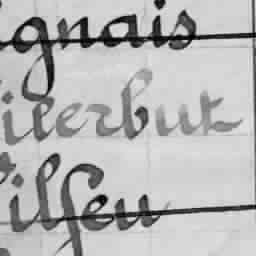 ignais
ilerbut
ilseu